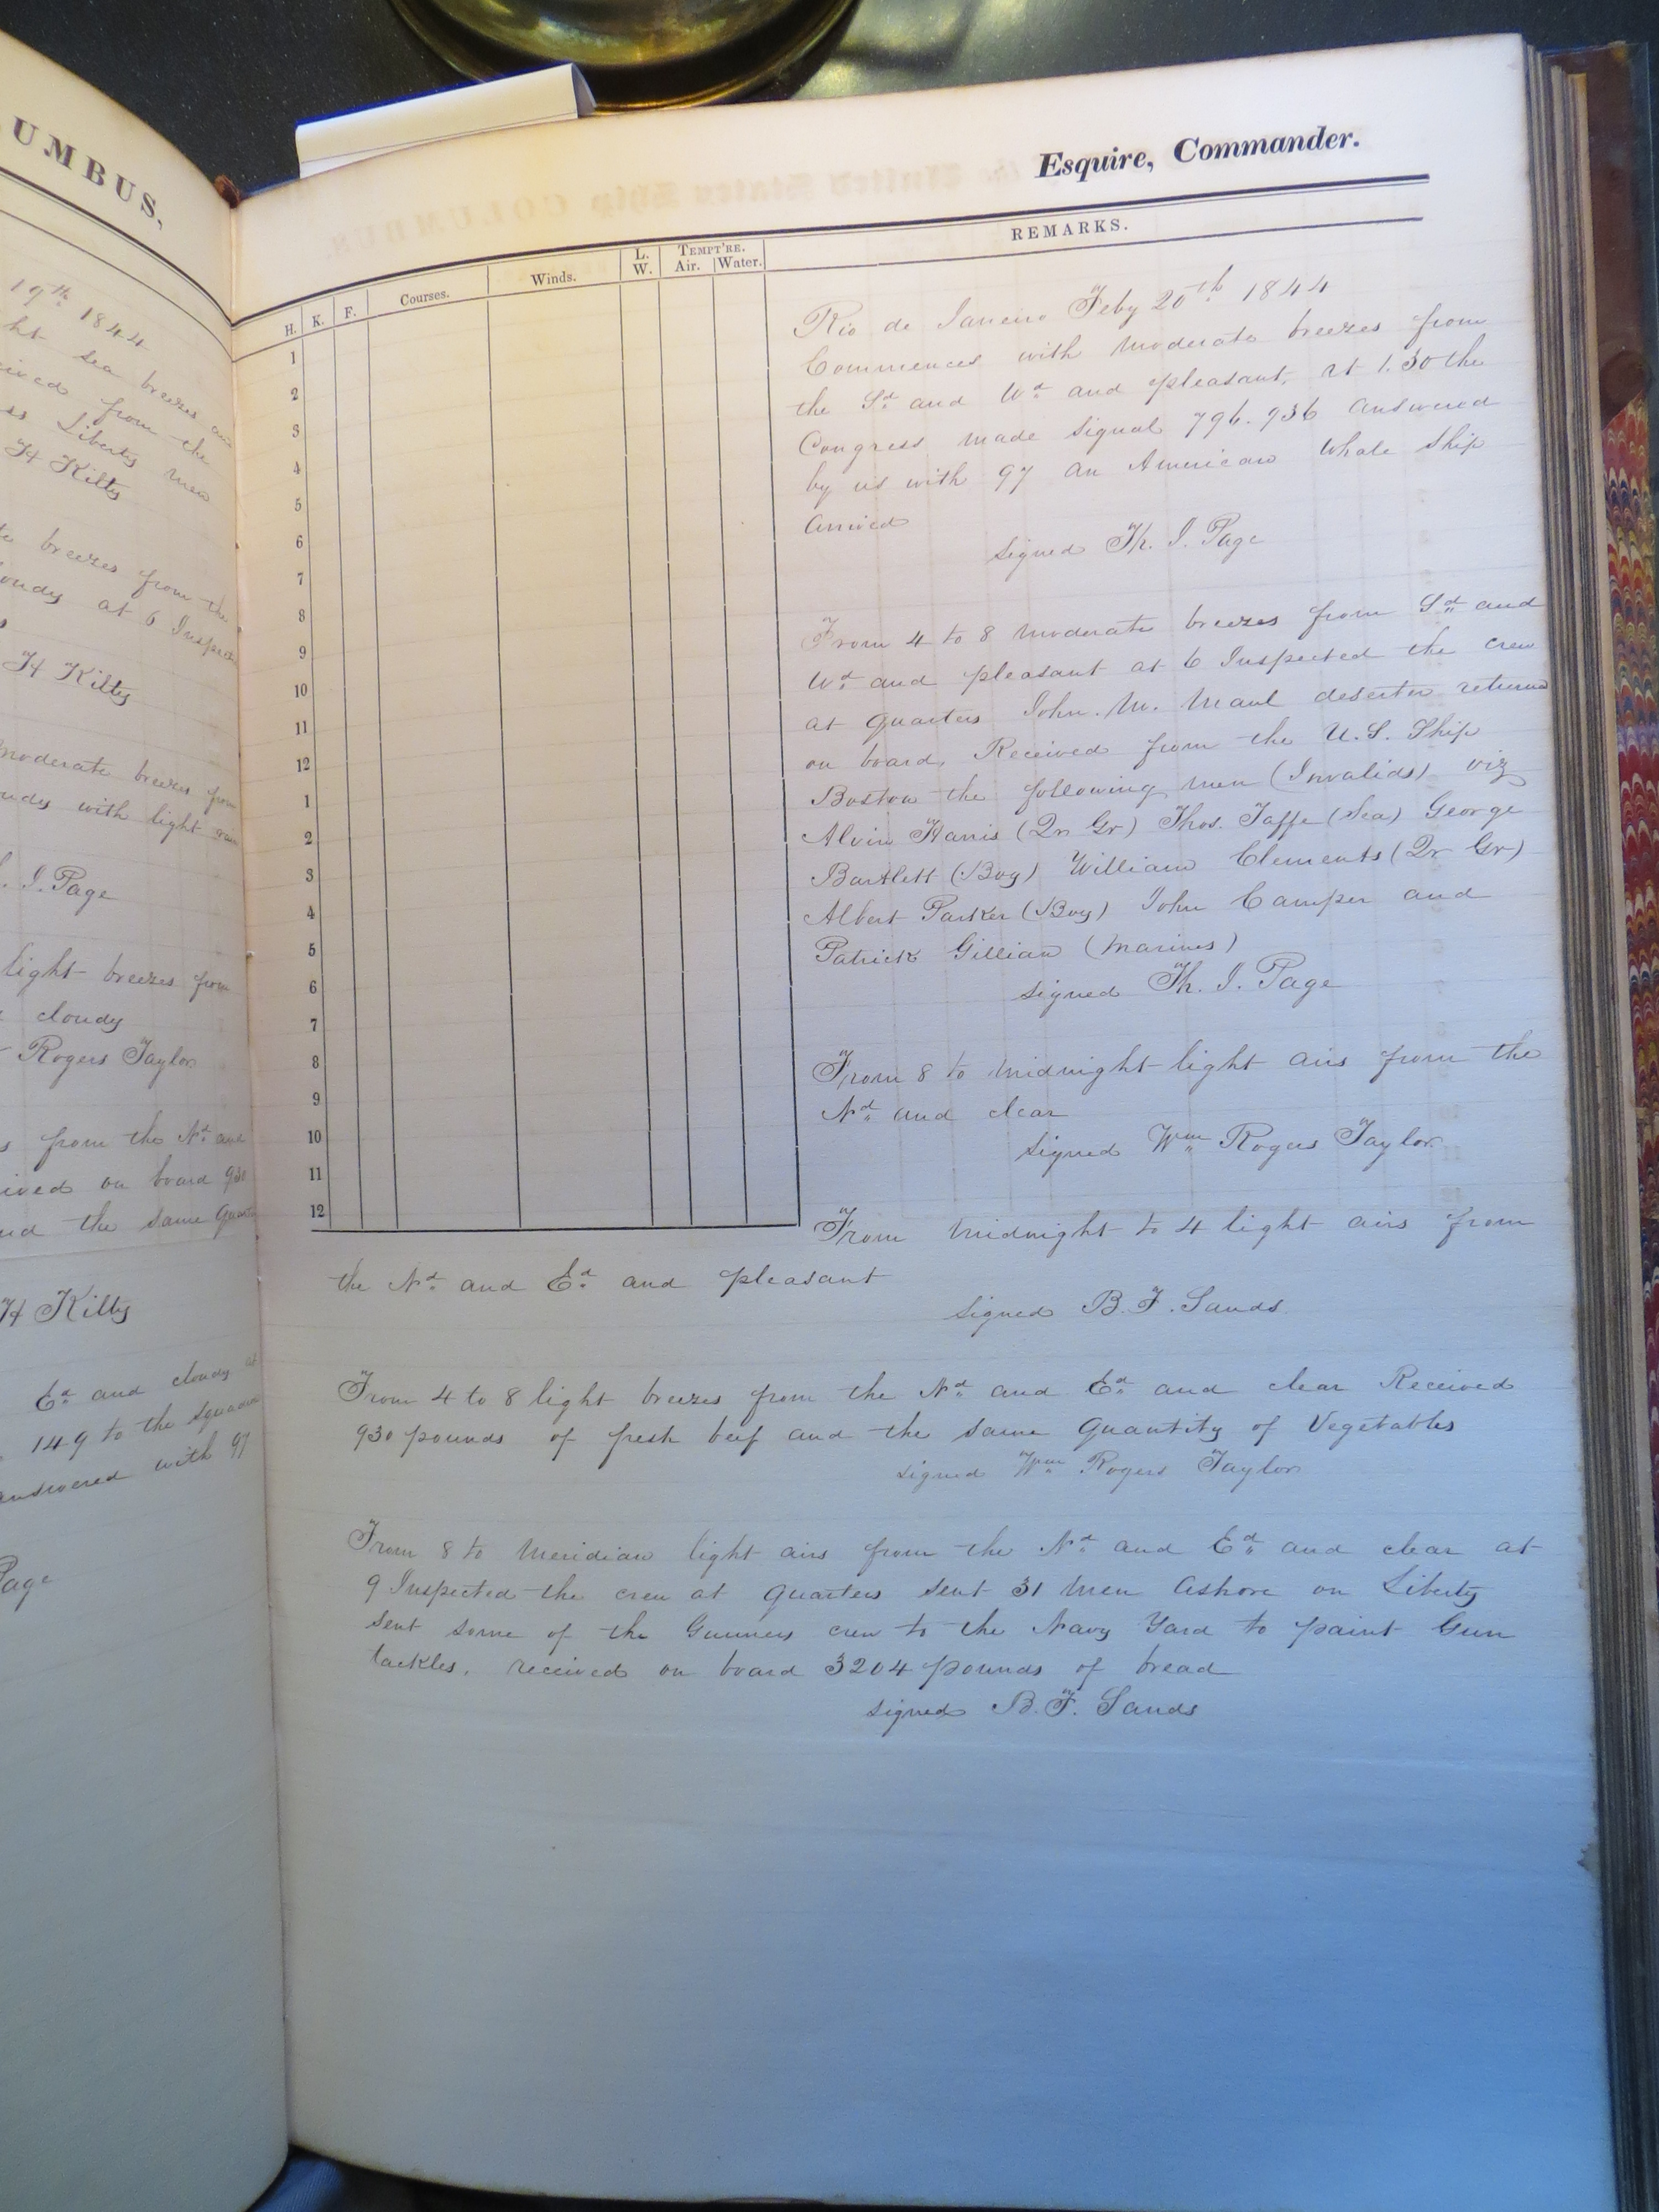 UMBUS,
19th 1844
ht sea breezes and
ceived from the
ss Liberty men
H Kilty
breezes from the
loudy at 6 Inspect
H Kilty
moderate breezes from
udy with light
. I. Page
light breezes from
cloudy
Rogers Taylor
s from the Nd and
ived on board 930
nd the same Quant
H Kilty
Ed and cloudy at
149 to the squadron
answered with 97
Page
Esquire, Commander.
H. K. F. Courses. Winds. L. W. TEMPT'RE. Air. Water. REMARKS.
1
2
3
4
5
6
7
8
9
10
11
12
1
2
3
4
5
6
7
8
9
10
11
12
Rio de Janeiro Feby 20th 1844
Commences with moderate breezes from
the Sd and Wd and pleasant, at 1.30 the
Congress made signal 796.936 answered
by us with 97 an American Whale Ship
arrived
signed Th. J. Page
From 4 to 8 moderate breezes from Sd and
Wd and pleasant at 6 Inspected the crew
at quarters John. M. Maul deserter returned
on board, Received from the U.S. Ship
Boston the following men (Invalids) viz
Alvin Harris (Qr Gr) Thos. Taffe (Sea) George
Bartlett (Boy) William Clements (Qr Gr)
Albert Parker (Boy) John Camper and
Patrick Gillian (Marines)
signed Th. J. Page
From 8 to midnight light airs from the
Nd and clear
signed Wm Rogers Taylor
From midnight to 4 light airs from
the Nd and Ed and pleasant
signed B. F. Sands
From 4 to 8 light breezes from the Nd and Ed and clear Received
930 pounds of fresh beef and the same Quantity of Vegetables
signed Wm Rogers Taylor
From 8 to Meridian light airs from the Nd and Ed and clear at
9 Inspected the crew at quarters sent 31 men ashore on Liberty
sent some of the Gunners crew to the Navy Yard to paint Gun
tackles. received on board 3204 pounds of bread
signed B. F. Sands